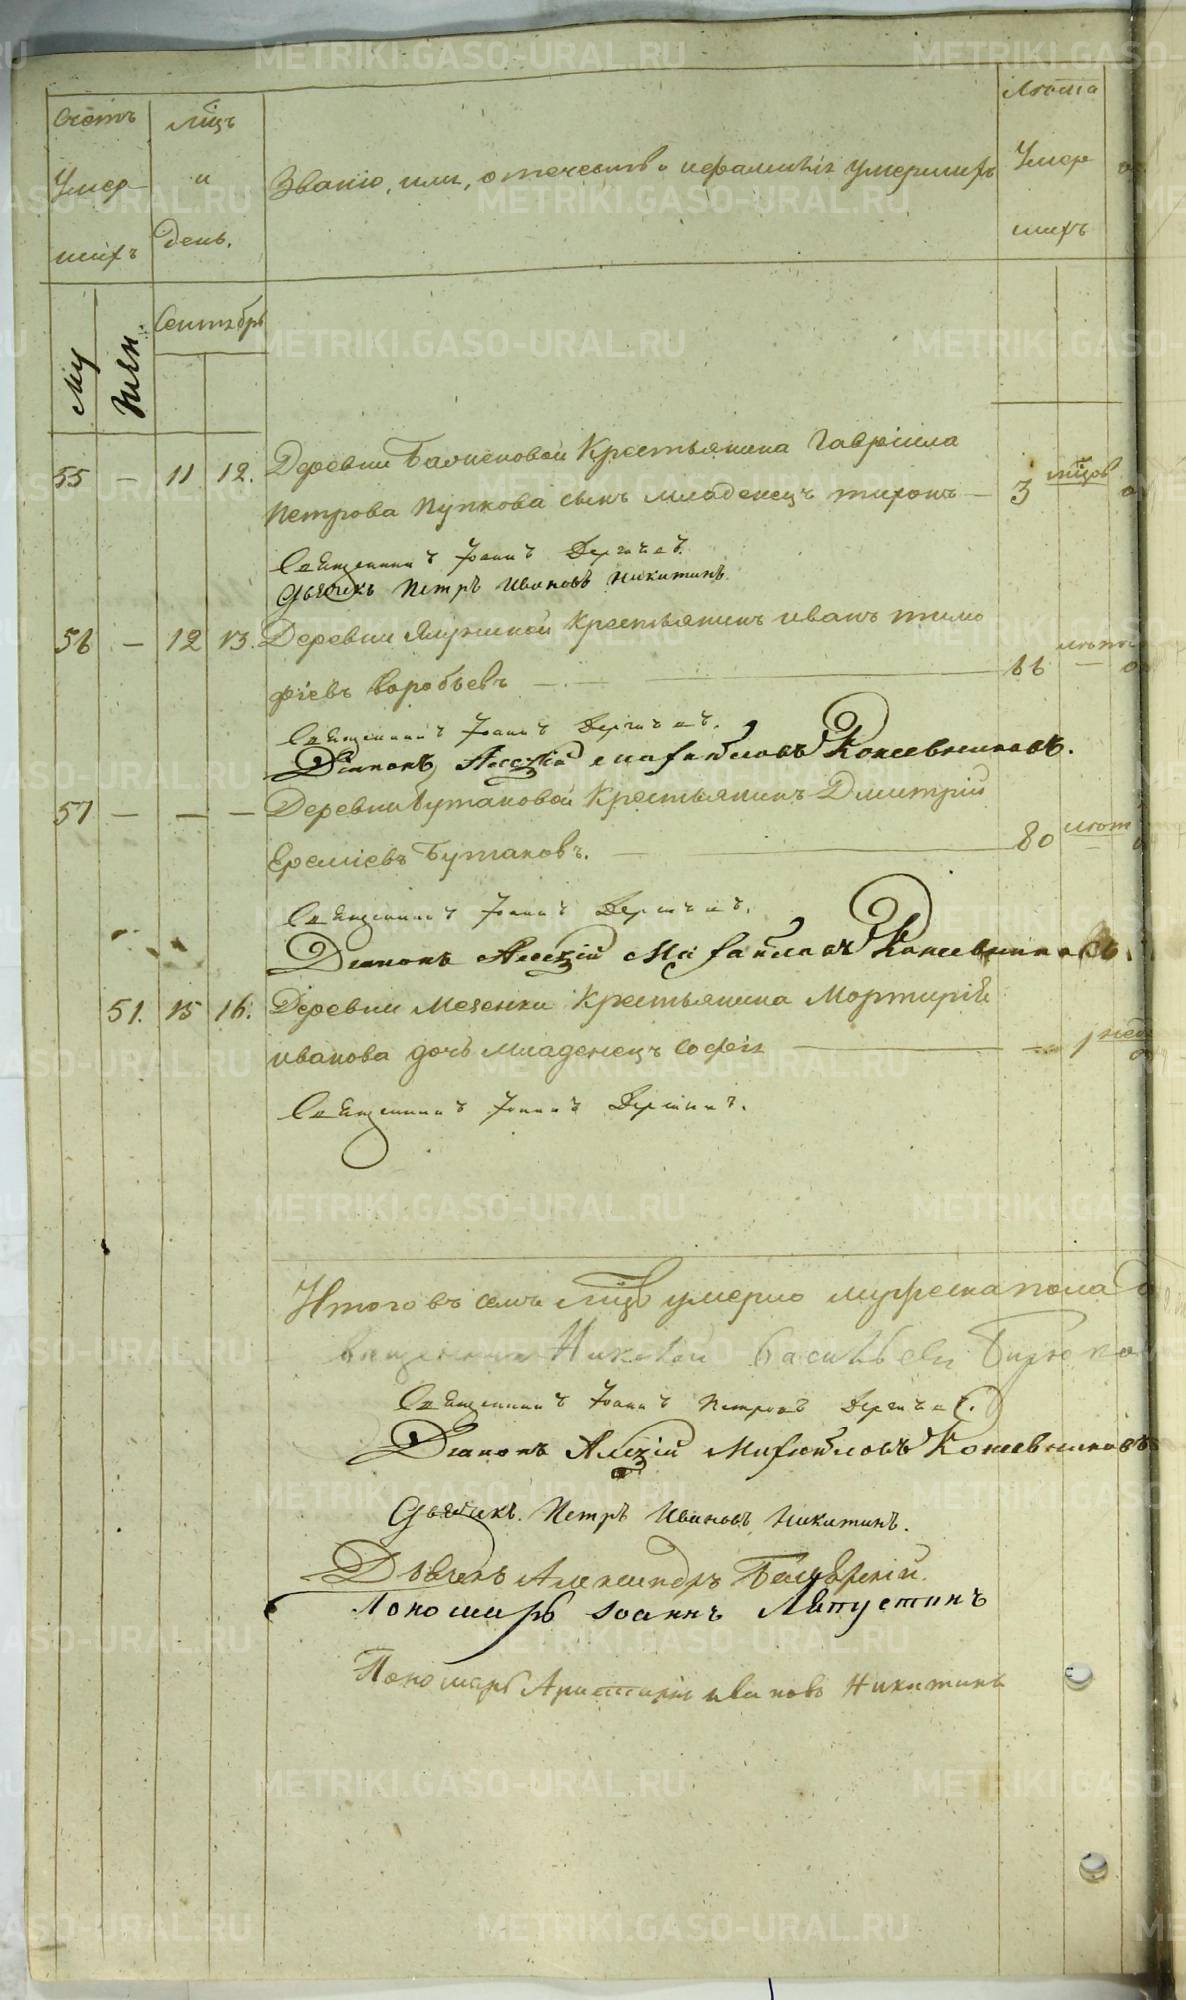 Счетъ
Умер-
шихъ
Мцъ
и
день.
Званiе, имя, отечество и фамилiя умершихъ
Лѣта
Умер
шихъ
му
жен.
Сентябрь
55 — 11 12. Деревни Крестьянина Гаврiила
Петрова Пупкова сынъ младенецъ тихонъ — 3 мцов
Священникъ Iоаннъ
Дьячекъ Петръ Ивановъ Никитинъ.
56 — 12 13. Деревни Крестьянинъ иванъ тимо
фiевъ Воробьевъ — 66
Священникъ Iоаннъ
Дiаконъ Алексiй Михайловъ Кожевниковъ.
57 — — — Деревни Бутаковой Крестьянинъ Дмитрiй
Еремiевъ Бутаковъ. — 80 лѣт
Священникъ Iоаннъ
Дiаконъ Алексiй Михайловъ Кожевниковъ.
51. 15 16. Деревни Мезенки Крестьянина Мартирiя
иванова дочь младенецъ Софiя — 1
Священникъ Iоаннъ
Итого въ семъ мцѣ умерло мужеска пола
Николай Васильевъ
Священникъ Iоаннъ Петровъ
Дiаконъ Алексiй Михайловъ Кожевниковъ
Дьячекъ. Петръ Ивановъ Никитинъ.
Дьячекъ Александръ
Пономарь Iоаннъ Лапустинъ
Пономарь ивановъ Никитинъ
METRIKI.GASO-URAL.RU